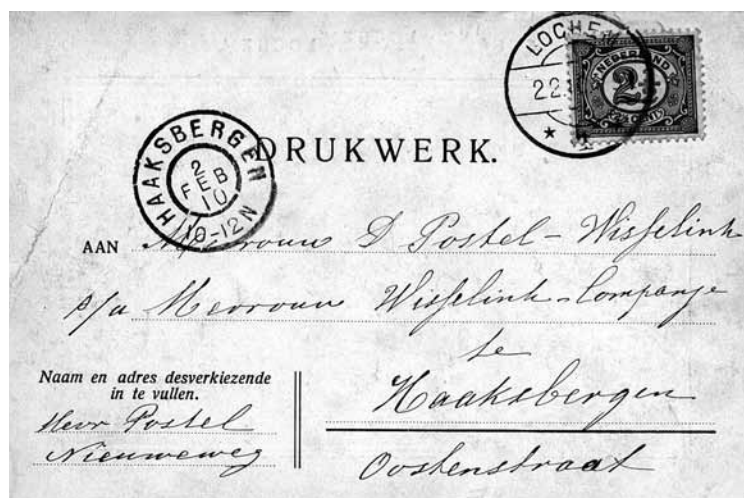 LOCHEM
22.
NEDERLAND
2½
2½ CENT
HAAKSBERGEN
2
FEB
10
10-12N
DRUKWERK.
AAN Mevrouw D Postel-Wisselink
p/a Mevrouw Wisselink-Companje
te
Haaksbergen
Oostenstraat
Naam en adres desverkiezende
in te vullen.
Heer Postel
Nieuweweg